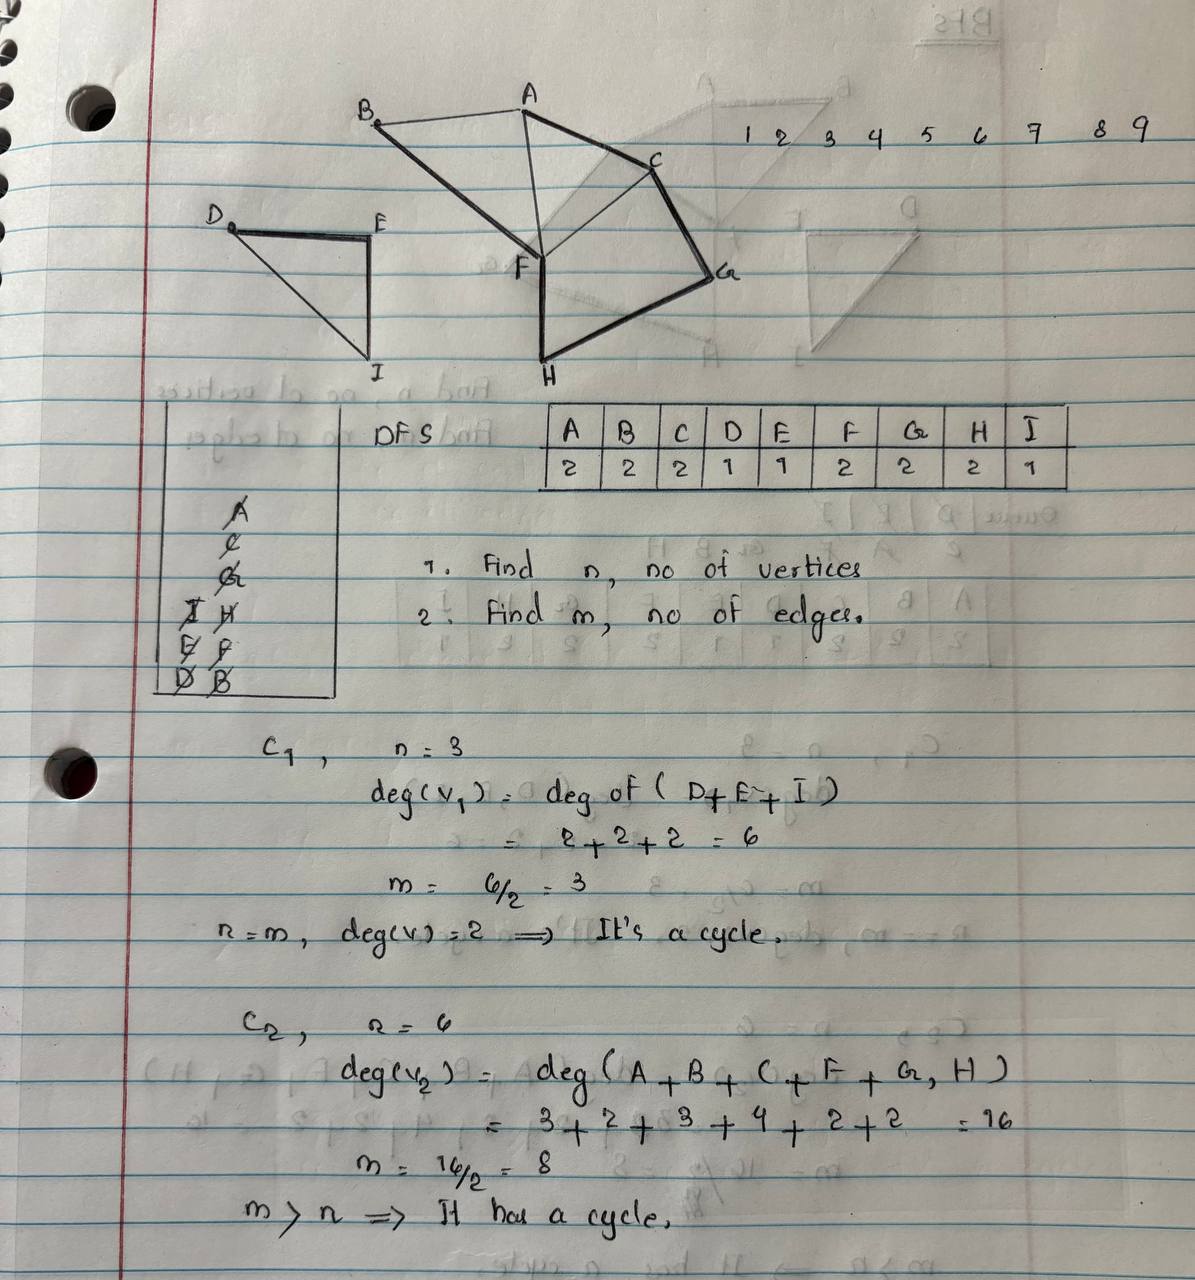 B A C 1 2 3 4 5 6 7 8 9
D E F G
I H
DFS
A B C D E F G H I
2 2 2 1 1 2 2 2 1
A
C
G
I H
E F
D B
1. Find n, no of vertices
2. Find m, no of edges.
C1, n = 3
deg(v1) = deg of ( D+E+I )
= 2+2+2 = 6
m = 6/2 = 3
n=m, deg(v)=2 ⟹ It's a cycle.
C2, n = 6
deg(v2) = deg( A + B + C + F + G, H )
= 3+2+3+4+2+2 = 16
m = 16/2 = 8
m > n ⟹ It has a cycle.